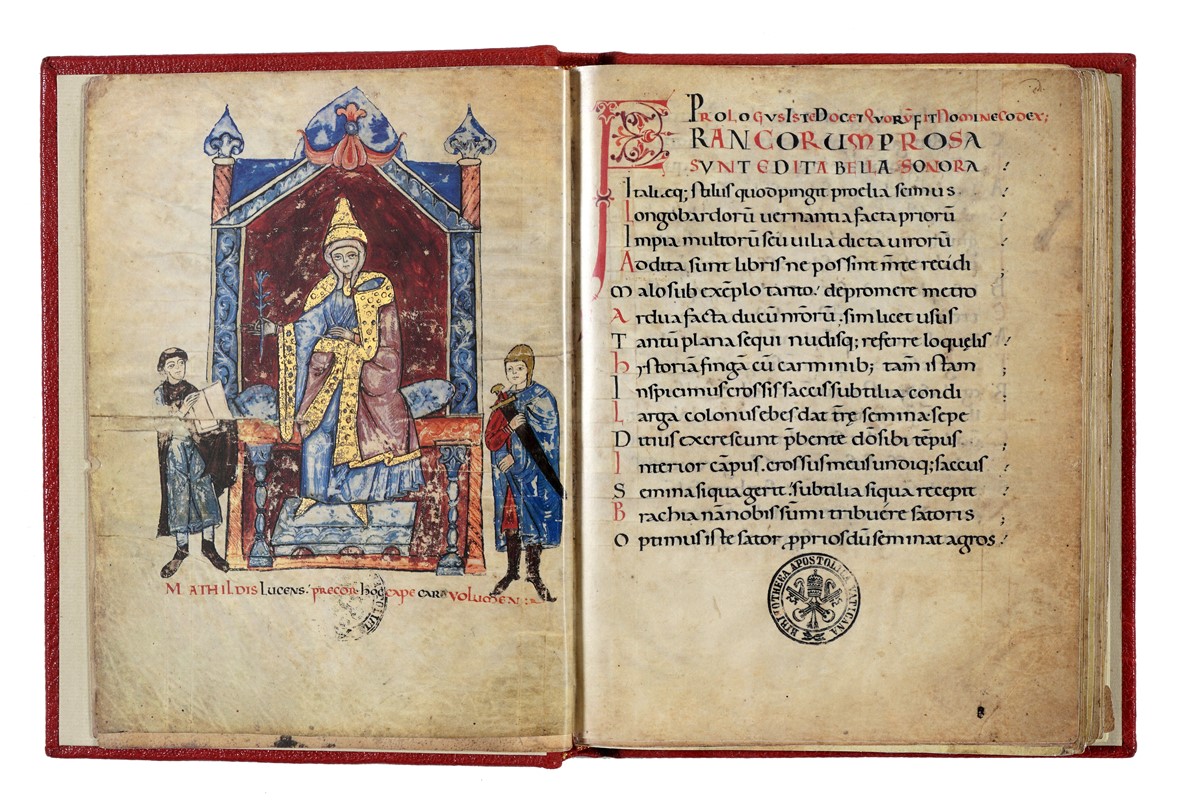 MATHILDIS LUCENS. PRECOR HOC CAPE CARA VOLUMEN
PROLOGVS ISTE DOCET QVORV̄ FIT NOMINE CODEX;
FRANCORUM PROSA
SVNT EDITA BELLA SONORA
Itali.eq; stilus quod pingit proelia scimus
Longobardorū uernantia facta priorū
Impia multorū seu uilia dicta uirorū
Addita sunt libris ne possint mte recidi
Malo sub exēplo tanto. depromere metro
Ardua facta ducū nrorū. sim licet usus
Tantū plana sequi nudisq; referre loquęlis
hystoriā fingā cū carminib; tam istam
Inspicimus crossis saccis subtilia condi
Larga colonus ebes dat terrę semina sepe
Ditius excrescunt pbente dō sibi tēpus
Interior cāpus. crossus meus undiq; saccus
Semina siqua gerit. subtilia siqua recepit
Brachia nā nobis sūmi tribuere satoris
Optimus iste sator pprios dū seminat agros.
BIBLIOTHECA APOSTOLICA VATICANA